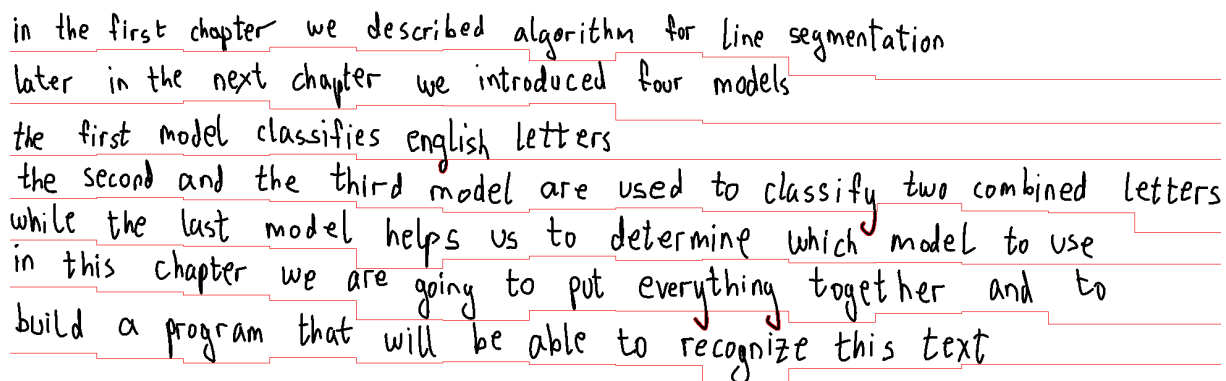 in the first chapter we described algorithm for line segmentation
later in the next chapter we introduced four models
the first model classifies english letters
the second and the third model are used to classify two combined letters
while the last model helps us to determine which model to use
in this chapter we are going to put everything together and to
build a program that will be able to recognize this text